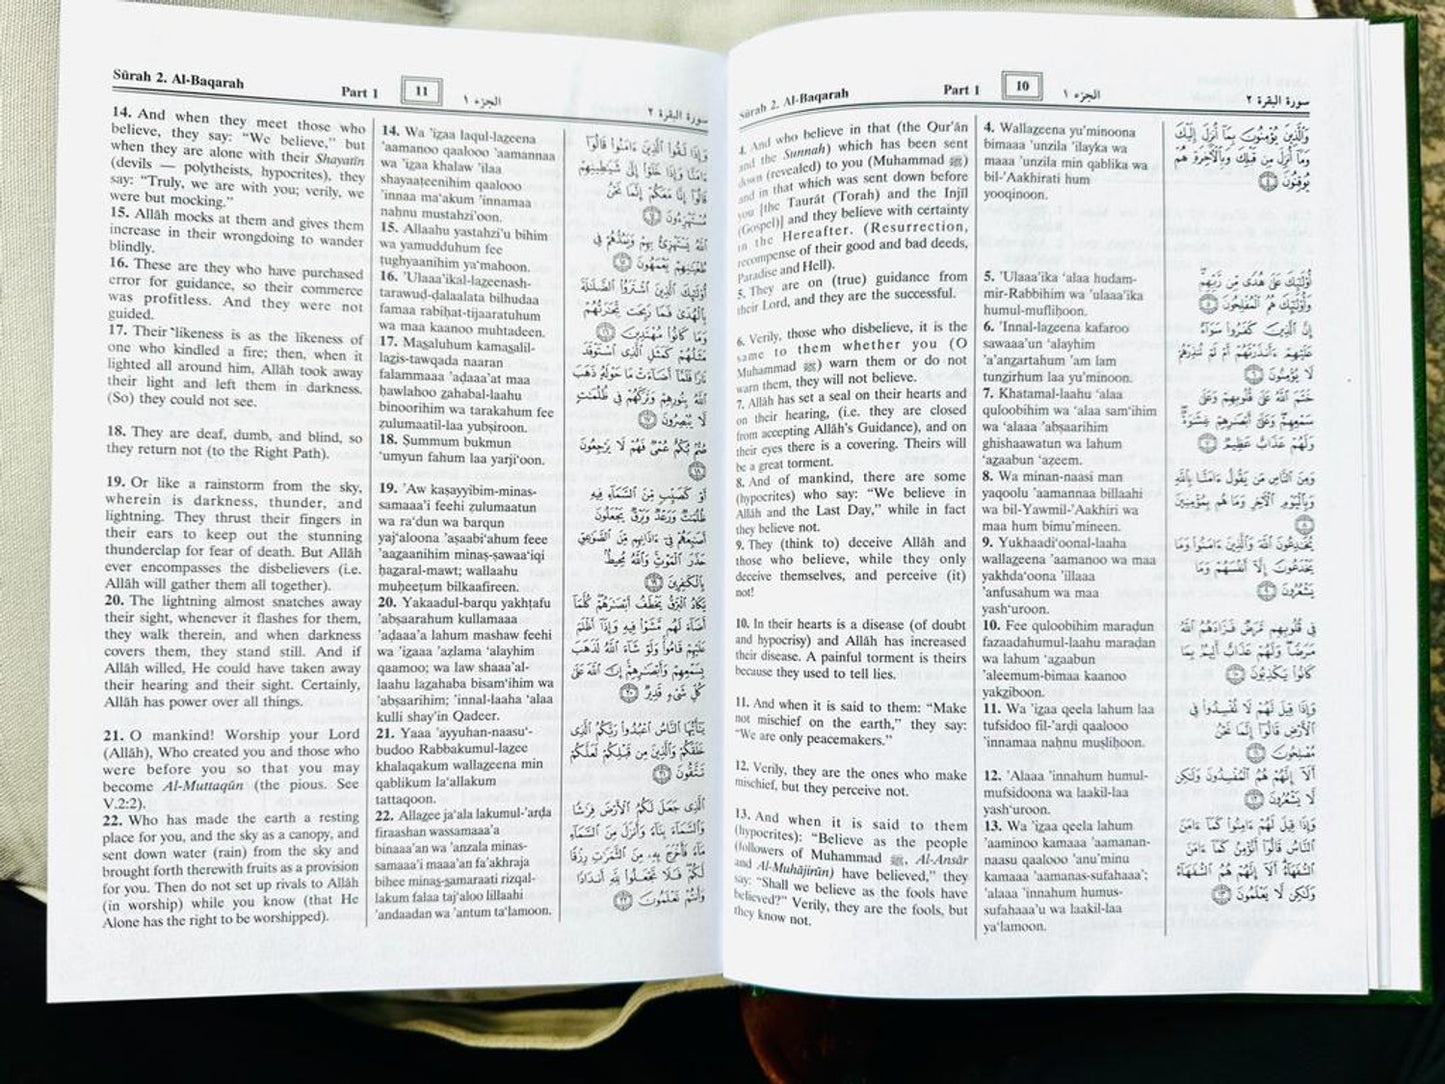 Sûrah 2. Al-Baqarah
Part 1
10
الجزء ١
سورة البقرة ٢
4. And who believe in that (the Qur'ân
and the Sunnah) which has been sent
down (revealed) to you (Muhammad ﷺ)
and in that which was sent down before
you [the Taurât (Torah) and the Injîl
(Gospel)] and they believe with certainty
in the Hereafter. (Resurrection,
recompense of their good and bad deeds,
Paradise and Hell).
5. They are on (true) guidance from
their Lord, and they are the successful.
6. Verily, those who disbelieve, it is the
same to them whether you (O
Muhammad ﷺ) warn them or do not
warn them, they will not believe.
7. Allâh has set a seal on their hearts and
on their hearing, (i.e. they are closed
from accepting Allâh's Guidance), and on
their eyes there is a covering. Theirs will
be a great torment.
8. And of mankind, there are some
(hypocrites) who say: “We believe in
Allâh and the Last Day,” while in fact
they believe not.
9. They (think to) deceive Allâh and
those who believe, while they only
deceive themselves, and perceive (it)
not!
10. In their hearts is a disease (of doubt
and hypocrisy) and Allâh has increased
their disease. A painful torment is theirs
because they used to tell lies.
11. And when it is said to them: “Make
not mischief on the earth,” they say:
“We are only peacemakers.”
12. Verily, they are the ones who make
mischief, but they perceive not.
13. And when it is said to them
(hypocrites): “Believe as the people
(followers of Muhammad ﷺ, Al-Ansâr
and Al-Muhâjirûn) have believed,” they
say: “Shall we believe as the fools have
believed?” Verily, they are the fools, but
they know not.
4. Wallaẓeena yu'minoona
bimaaa 'unzila 'ilayka wa
maaa 'unzila min qablika wa
bil-'Aakhirati hum
yooqinoon.
5. 'Ulaaa'ika ‘alaa hudam-
mir-Rabbihim wa 'ulaaa'ika
humul-mufliḥoon.
6. 'Innal-laẓeena kafaroo
sawaaa'un ‘alayhim
'a'anẓartahum 'am lam
tunẓirhum laa yu'minoon.
7. Khatamal-laahu ‘alaa
quloobihim wa ‘alaa sam‘ihim
wa ‘alaaa 'abṣaarihim
ghishaawatun wa lahum
‘aẓaabun ‘aẓeem.
8. Wa minan-naasi man
yaqoolu 'aamannaa billaahi
wa bil-Yawmil-'Aakhiri wa
maa hum bimu'mineen.
9. Yukhaadi‘oonal-laaha
wallaẓeena 'aamanoo wa maa
yakhda‘oona 'illaaa
'anfusahum wa maa
yash‘uroon.
10. Fee quloobihim maraḍun
fazaadahumul-laahu maraḍan
wa lahum ‘aẓaabun
'aleemum-bimaa kaanoo
yakẓiboon.
11. Wa 'iẓaa qeela lahum laa
tufsidoo fil-'arḍi qaalooo
'innamaa naḥnu muṣliḥoon.
12. 'Alaaa 'innahum humul-
mufsidoona wa laakil-laa
yash‘uroon.
13. Wa 'iẓaa qeela lahum
'aaminoo kamaaa 'aamanan-
naasu qaalooo 'anu'minu
kamaaa 'aamanas-sufahaaa';
'alaaa 'innahum humus-
sufahaaa'u wa laakil-laa
ya‘lamoon.
وَالَّذِينَ يُؤْمِنُونَ بِمَا أُنزِلَ إِلَيْكَ
وَمَا أُنزِلَ مِن قَبْلِكَ وَبِالْآخِرَةِ هُمْ
يُوقِنُونَ ٤
أُوْلَٰئِكَ عَلَىٰ هُدًى مِّن رَّبِّهِمْ
وَأُوْلَٰئِكَ هُمُ الْمُفْلِحُونَ ٥
إِنَّ الَّذِينَ كَفَرُوا سَوَاءٌ
عَلَيْهِمْ ءَأَنذَرْتَهُمْ أَمْ لَمْ تُنذِرْهُمْ
لَا يُؤْمِنُونَ ٦
خَتَمَ اللَّهُ عَلَىٰ قُلُوبِهِمْ وَعَلَىٰ
سَمْعِهِمْ وَعَلَىٰ أَبْصَٰرِهِمْ غِشَٰوَةٌ
وَلَهُمْ عَذَابٌ عَظِيمٌ ٧
وَمِنَ النَّاسِ مَن يَقُولُ ءَامَنَّا بِاللَّهِ
وَبِالْيَوْمِ الْآخِرِ وَمَا هُم بِمُؤْمِنِينَ
٨
يُخَٰدِعُونَ اللَّهَ وَالَّذِينَ ءَامَنُوا وَمَا
يَخْدَعُونَ إِلَّا أَنفُسَهُمْ وَمَا
يَشْعُرُونَ ٩
فِي قُلُوبِهِم مَّرَضٌ فَزَادَهُمُ اللَّهُ
مَرَضًا وَلَهُمْ عَذَابٌ أَلِيمٌ بِمَا
كَانُوا يَكْذِبُونَ ١٠
وَإِذَا قِيلَ لَهُمْ لَا تُفْسِدُوا فِي
الْأَرْضِ قَالُوا إِنَّمَا نَحْنُ
مُصْلِحُونَ ١١
أَلَا إِنَّهُمْ هُمُ الْمُفْسِدُونَ وَلَٰكِن
لَّا يَشْعُرُونَ ١٢
وَإِذَا قِيلَ لَهُمْ ءَامِنُوا كَمَا ءَامَنَ
النَّاسُ قَالُوا أَنُؤْمِنُ كَمَا ءَامَنَ
السُّفَهَاءُ أَلَا إِنَّهُمْ هُمُ السُّفَهَاءُ
وَلَٰكِن لَّا يَعْلَمُونَ ١٣
Sûrah 2. Al-Baqarah
Part 1
11
الجزء ١
سورة البقرة ٢
14. And when they meet those who
believe, they say: “We believe,” but
when they are alone with their Shayatîn
(devils — polytheists, hypocrites), they
say: “Truly, we are with you; verily, we
were but mocking.”
15. Allâh mocks at them and gives them
increase in their wrongdoing to wander
blindly.
16. These are they who have purchased
error for guidance, so their commerce
was profitless. And they were not
guided.
17. Their likeness is as the likeness of
one who kindled a fire; then, when it
lighted all around him, Allâh took away
their light and left them in darkness.
(So) they could not see.
18. They are deaf, dumb, and blind, so
they return not (to the Right Path).
19. Or like a rainstorm from the sky,
wherein is darkness, thunder, and
lightning. They thrust their fingers in
their ears to keep out the stunning
thunderclap for fear of death. But Allâh
ever encompasses the disbelievers (i.e.
Allâh will gather them all together).
20. The lightning almost snatches away
their sight, whenever it flashes for them,
they walk therein, and when darkness
covers them, they stand still. And if
Allâh willed, He could have taken away
their hearing and their sight. Certainly,
Allâh has power over all things.
21. O mankind! Worship your Lord
(Allâh), Who created you and those who
were before you so that you may
become Al-Muttaqûn (the pious. See
V.2:2).
22. Who has made the earth a resting
place for you, and the sky as a canopy, and
sent down water (rain) from the sky and
brought forth therewith fruits as a provision
for you. Then do not set up rivals to Allâh
(in worship) while you know (that He
Alone has the right to be worshipped).
14. Wa 'iẓaa laqul-laẓeena
'aamanoo qaalooo 'aamannaa
wa 'iẓaa khalaw 'ilaa
shayaaṭeenihim qaalooo
'innaa ma‘akum 'innamaa
naḥnu mustahzi'oon.
15. Allaahu yastahzi'u bihim
wa yamudduhum fee
ṭughyaanihim ya‘mahoon.
16. 'Ulaaa'ikal-laẓeenash-
tarawuḍ-ḍalaalata bilhudaa
famaa rabiḥat-tijaaratuhum
wa maa kaanoo muhtadeen.
17. Maṣaluhum kamaṣalil-
laẓis-tawqada naaran
falammaaa 'aḍaaa'at maa
ḥawlahoo ẓahabal-laahu
binoorihim wa tarakahum fee
ẓulumaatil-laa yubṣiroon.
18. Ṣummum bukmun
‘umyun fahum laa yarji‘oon.
19. 'Aw kaṣayyibim-minas-
samaaa'i feehi ẓulumaatun
wa ra‘dun wa barqun
yaj‘aloona 'aṣaabi‘ahum feee
'aaẓaanihim minaṣ-ṣawaa‘iqi
ḥaẓaral-mawt; wallaahu
muḥeeṭum bilkaafireen.
20. Yakaadul-barqu yakhṭafu
'abṣaarahum kullamaaa
'aḍaaa'a lahum mashaw feehi
wa 'iẓaaa 'aẓlama ‘alayhim
qaamoo; wa law shaaa'al-
laahu laẓahaba bisam‘ihim wa
'abṣaarihim; 'innal-laaha ‘alaa
kulli shay'in Qadeer.
21. Yaaa 'ayyuhan-naasu‘-
budoo Rabbakumul-laẓee
khalaqakum wallaẓeena min
qablikum la‘allakum
tattaqoon.
22. Allaẓee ja‘ala lakumul-'arḍa
firaashan wassamaaa'a
binaaa'an wa 'anzala minas-
samaaa'i maaa'an fa'akhraja
bihee minaṣ-ṣamaraati rizqal-
lakum falaa taj‘aloo lillaahi
'andaadan wa 'antum ta‘lamoon.
وَإِذَا لَقُوا الَّذِينَ ءَامَنُوا قَالُوا
ءَامَنَّا وَإِذَا خَلَوْا إِلَىٰ شَيَٰطِينِهِمْ
قَالُوا إِنَّا مَعَكُمْ إِنَّمَا نَحْنُ
مُسْتَهْزِءُونَ ١٤
اللَّهُ يَسْتَهْزِئُ بِهِمْ وَيَمُدُّهُمْ فِي
طُغْيَٰنِهِمْ يَعْمَهُونَ ١٥
أُوْلَٰئِكَ الَّذِينَ اشْتَرَوُا الضَّلَٰلَةَ
بِالْهُدَىٰ فَمَا رَبِحَت تِّجَٰرَتُهُمْ
وَمَا كَانُوا مُهْتَدِينَ ١٦
مَثَلُهُمْ كَمَثَلِ الَّذِي اسْتَوْقَدَ
نَارًا فَلَمَّا أَضَاءَتْ مَا حَوْلَهُ ذَهَبَ
اللَّهُ بِنُورِهِمْ وَتَرَكَهُمْ فِي ظُلُمَٰتٍ
لَّا يُبْصِرُونَ ١٧
صُمٌّ بُكْمٌ عُمْيٌ فَهُمْ لَا يَرْجِعُونَ
١٨
أَوْ كَصَيِّبٍ مِّنَ السَّمَاءِ فِيهِ
ظُلُمَٰتٌ وَرَعْدٌ وَبَرْقٌ يَجْعَلُونَ
أَصَٰبِعَهُمْ فِي ءَاذَانِهِم مِّنَ الصَّوَٰعِقِ
حَذَرَ الْمَوْتِ وَاللَّهُ مُحِيطٌ
بِالْكَٰفِرِينَ ١٩
يَكَادُ الْبَرْقُ يَخْطَفُ أَبْصَٰرَهُمْ كُلَّمَا
أَضَاءَ لَهُم مَّشَوْا فِيهِ وَإِذَا أَظْلَمَ
عَلَيْهِمْ قَامُوا وَلَوْ شَاءَ اللَّهُ لَذَهَبَ
بِسَمْعِهِمْ وَأَبْصَٰرِهِمْ إِنَّ اللَّهَ عَلَىٰ
كُلِّ شَيْءٍ قَدِيرٌ ٢٠
يَٰأَيُّهَا النَّاسُ اعْبُدُوا رَبَّكُمُ الَّذِي
خَلَقَكُمْ وَالَّذِينَ مِن قَبْلِكُمْ لَعَلَّكُمْ
تَتَّقُونَ ٢١
الَّذِي جَعَلَ لَكُمُ الْأَرْضَ فِرَٰشًا
وَالسَّمَاءَ بِنَاءً وَأَنزَلَ مِنَ السَّمَاءِ
مَاءً فَأَخْرَجَ بِهِ مِنَ الثَّمَرَٰتِ رِزْقًا
لَّكُمْ فَلَا تَجْعَلُوا لِلَّهِ أَندَادًا
وَأَنتُمْ تَعْلَمُونَ ٢٢